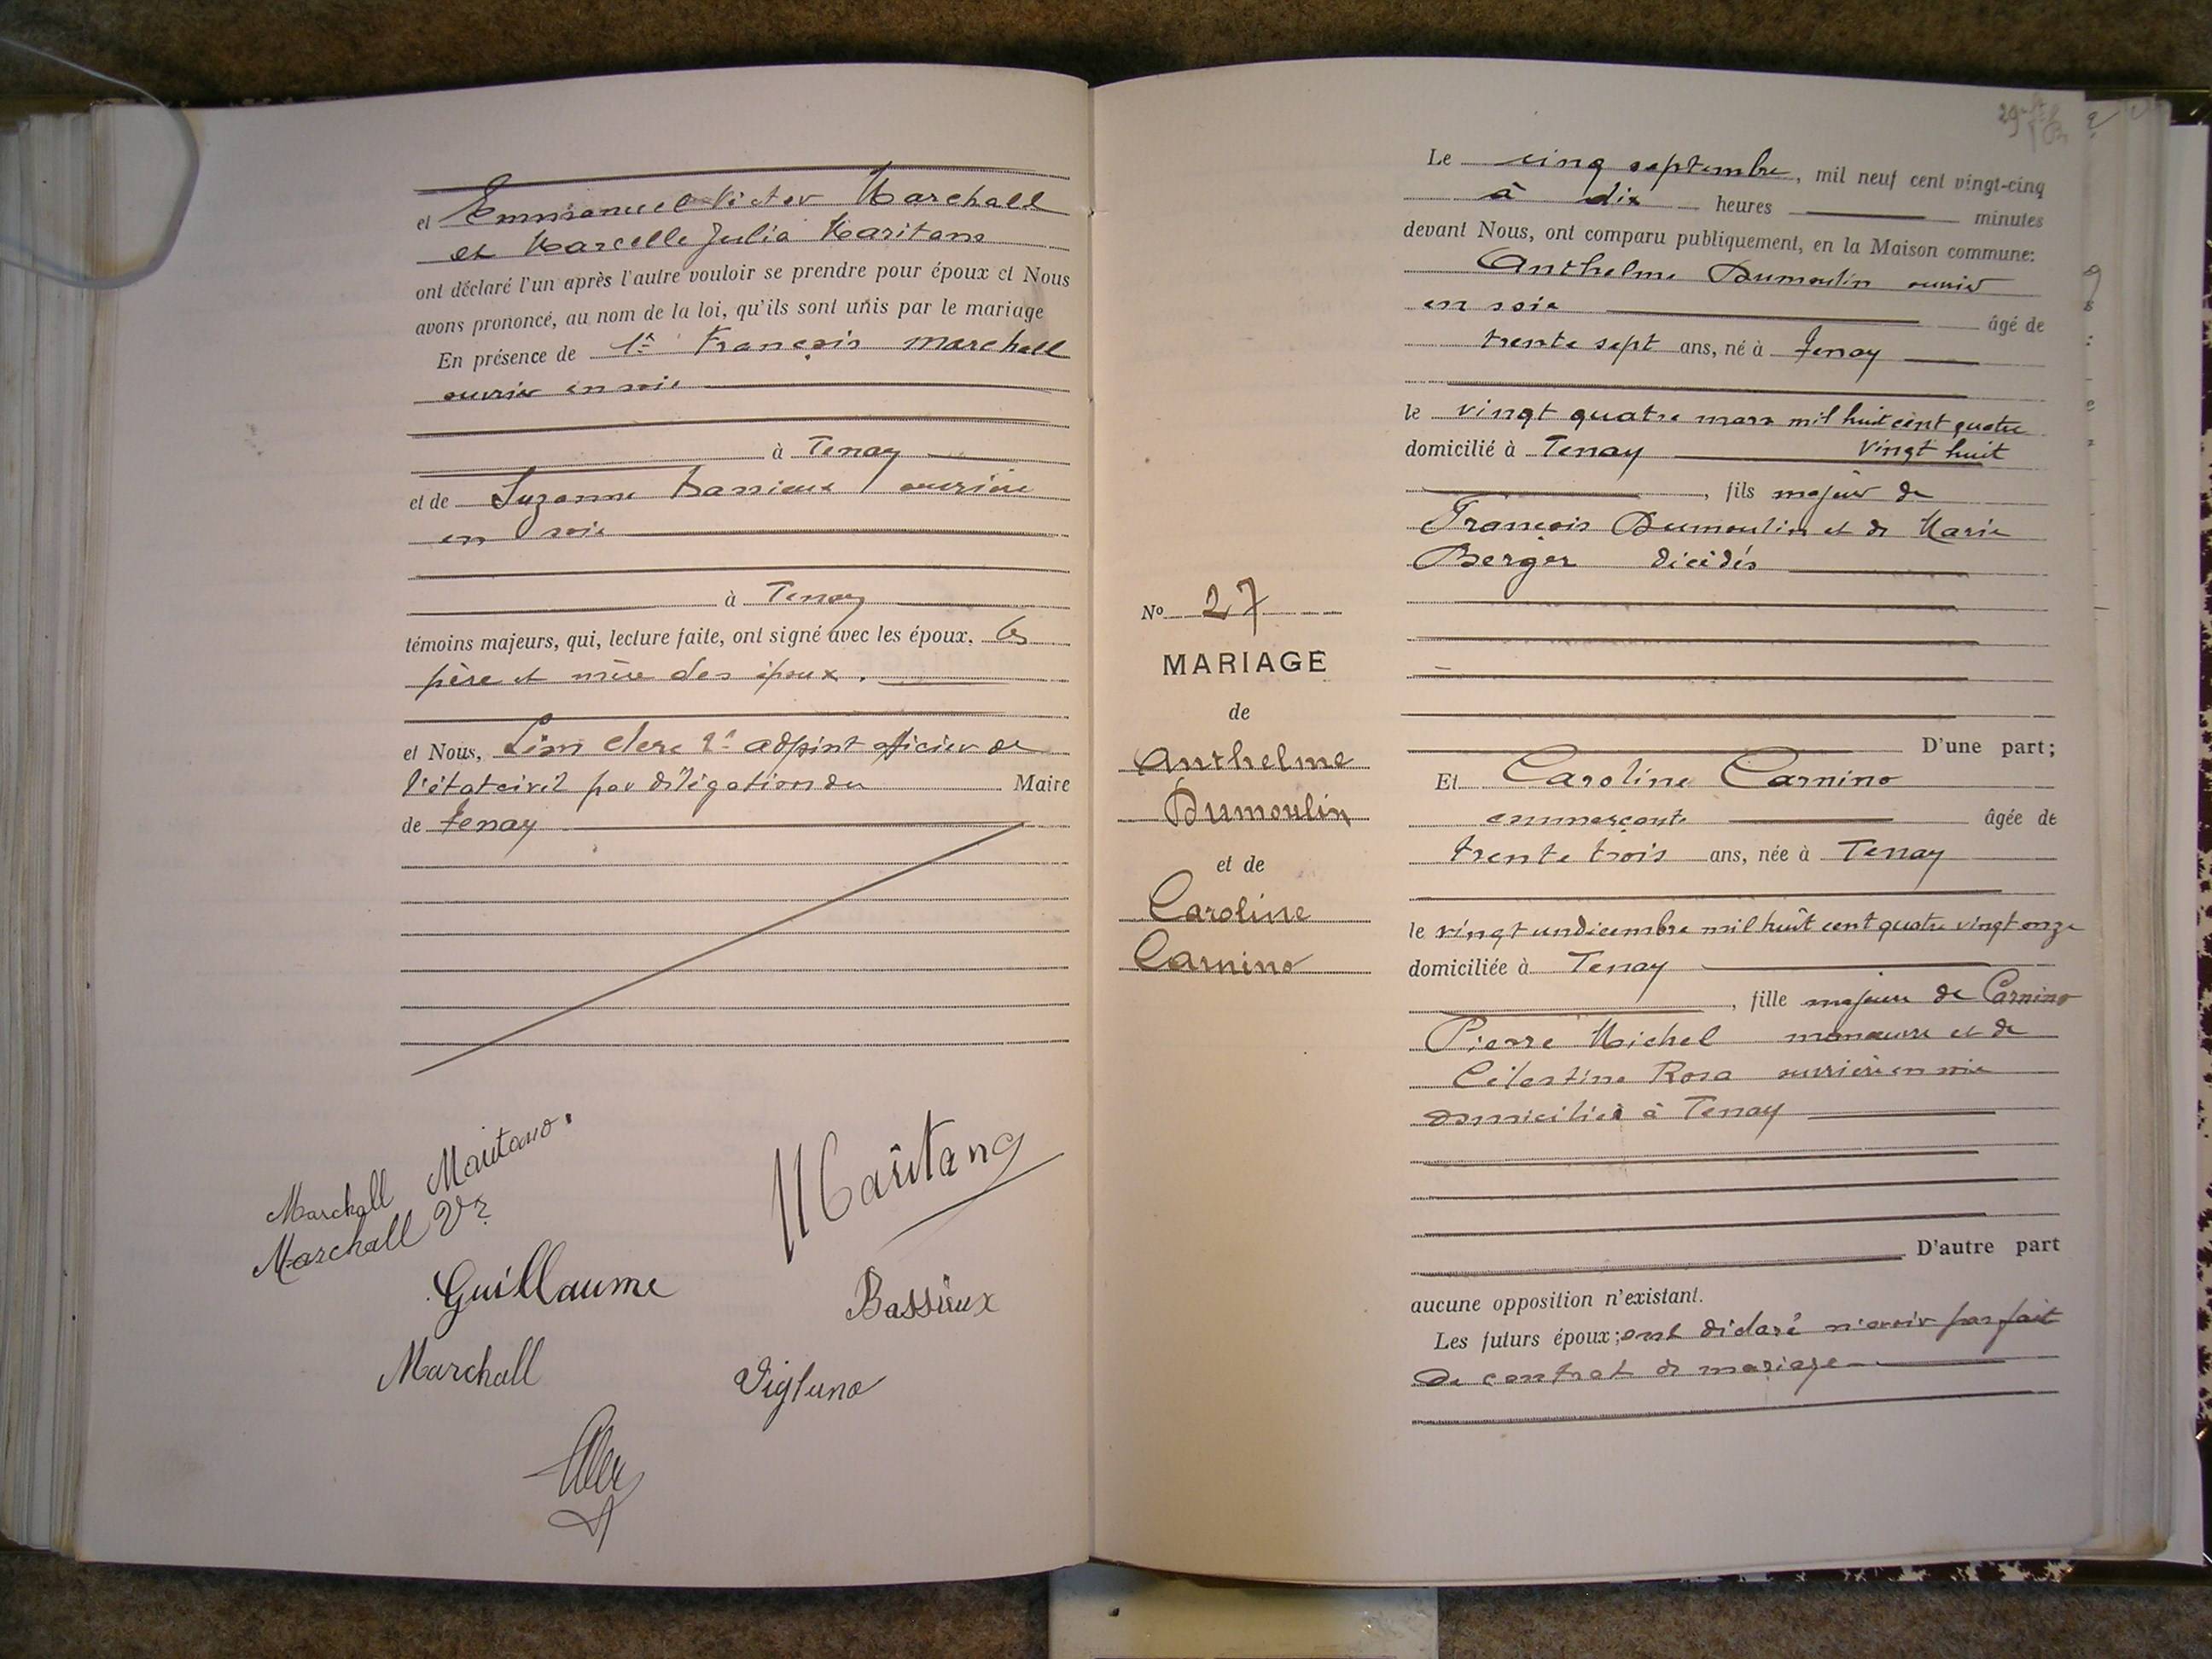 et Emmanuel Victor Marchall
et Marcelle Julia Maritano
ont déclaré l'un après l'autre vouloir se prendre pour époux et Nous
avons prononcé, au nom de la loi, qu'ils sont unis par le mariage
En présence de 1º François Marchall
ouvrier en soie
à Tenay
et de Suzanne Bassieux ouvrière
en soie
à Tenay
témoins majeurs, qui, lecture faite, ont signé avec les époux, les
père et mère des époux.
et Nous, Léon Clerc adjoint officier de
l'état civil par délégation du Maire
de Tenay
Marchall Maritano
Marchall Vr
Maritano
Guillaume
Bassieux
Marchall
Vigluno
Nº 27
MARIAGE
de
Anthelme
Dumoulin
et de
Caroline
Carnino
Le cinq septembre, mil neuf cent vingt-cinq
à dix heures minutes
devant Nous, ont comparu publiquement, en la Maison commune:
Anthelme Dumoulin ouvrier
en soie âgé de
trente sept ans, né à Tenay
le vingt quatre mars mil huit cent quatre
vingt huit
domicilié à Tenay
, fils majeur de
François Dumoulin et de Marie
Berger décédés
D'une part;
Et Caroline Carnino
commerçante âgée de
trente trois ans, née à Tenay
le vingt un décembre mil huit cent quatre vingt onze
domiciliée à Tenay
, fille majeure de Carnino
Pierre Michel manœuvre et de
Célestine Rosa ouvrière en soie
domiciliés à Tenay
D'autre part
aucune opposition n'existant.
Les futurs époux; ont déclaré n'avoir pas fait
de contrat de mariage